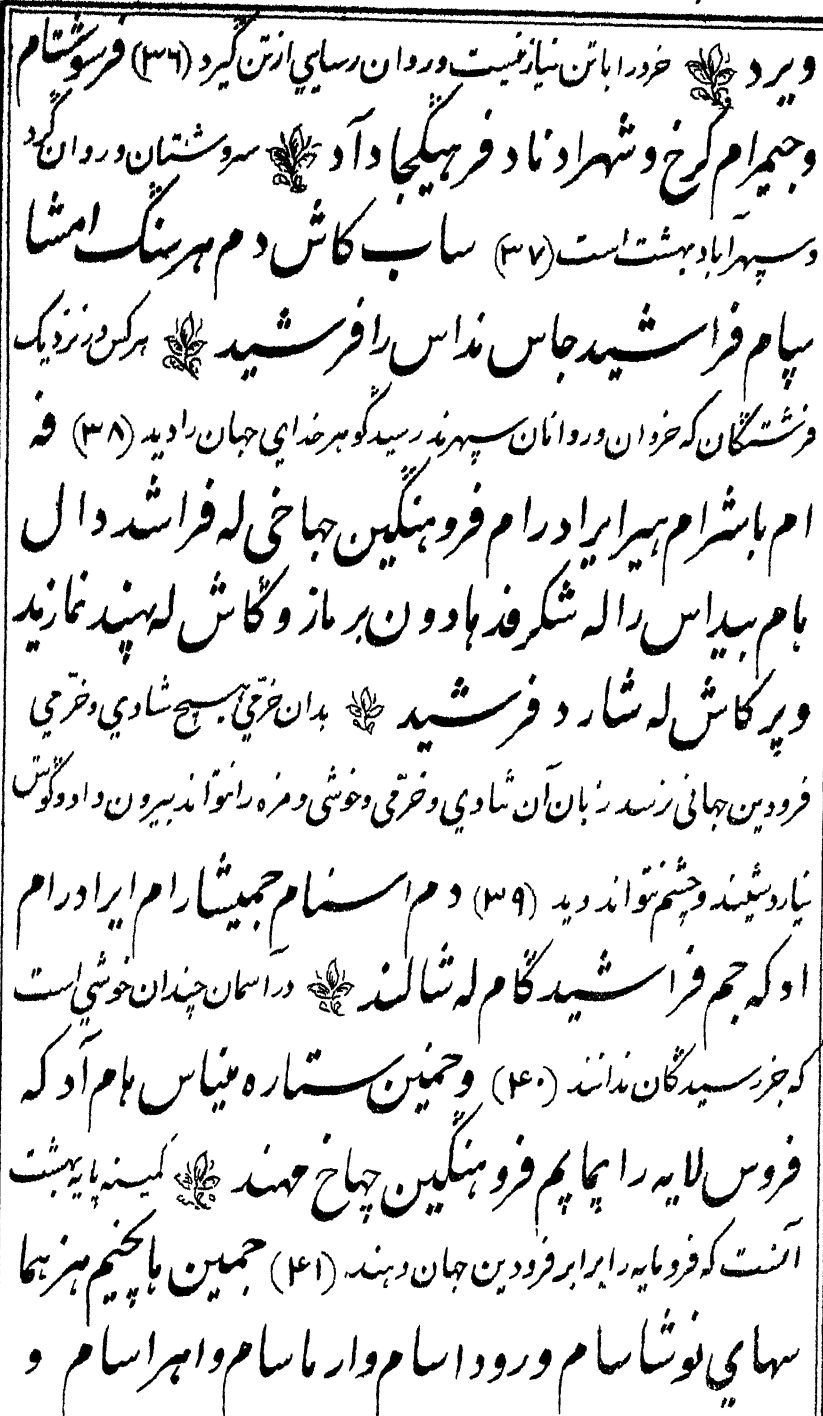 ویرد خرد را با تن نیاز نیست و روان رسایی از تن گیرد (۳۶) فرسوشتام
و جیمرام کرخ و شهرادناد فرهیگجاد آد سروشستان و روان گرد
و سپهر آباد بهشت است (۳۷) ساب کاش دم هرسنگ امشا
سپام فراشید جاس نداس را فرشید هر کس در نزدیک
فرشتگان که خردان و روانان سپهرند رسید گوهر خدای جهان را دید (۳۸) فه
ام باشرام هیر ایرادرام فروهنگین جهاخی له فراشد دال
هام بیداس را له شکرفد هادون بر ماز و گاش له بهپند نمازید
و پرکاش له شارد فرشید بدان خرمی هیچ شادی و خرمی
فرودین جهانی نرسد زبان آن شادی و خرمی و خوشی و مزه را نتواند بیرون داد و گوش
نیارد شیند و چشم نتواند دید (۳۹) دم اسنام جمیشارام ایرادرام
اد که جم فراشیدگام له شالند در آسمان چندان خوشی است
که جز رسیدگان ندانند (۴۰) و حمنین ستاره میناس هام آد که
فروس لایه را پماپم فروهنگین جهاخ مهند کمینه پایه بهشت
آنست که فرومایه را برابر فرودین جهان دهند (۴۱) جمین هاپخیم هزهما
سهای نوشاسام و روداسام و ارماسام و اهراسام و